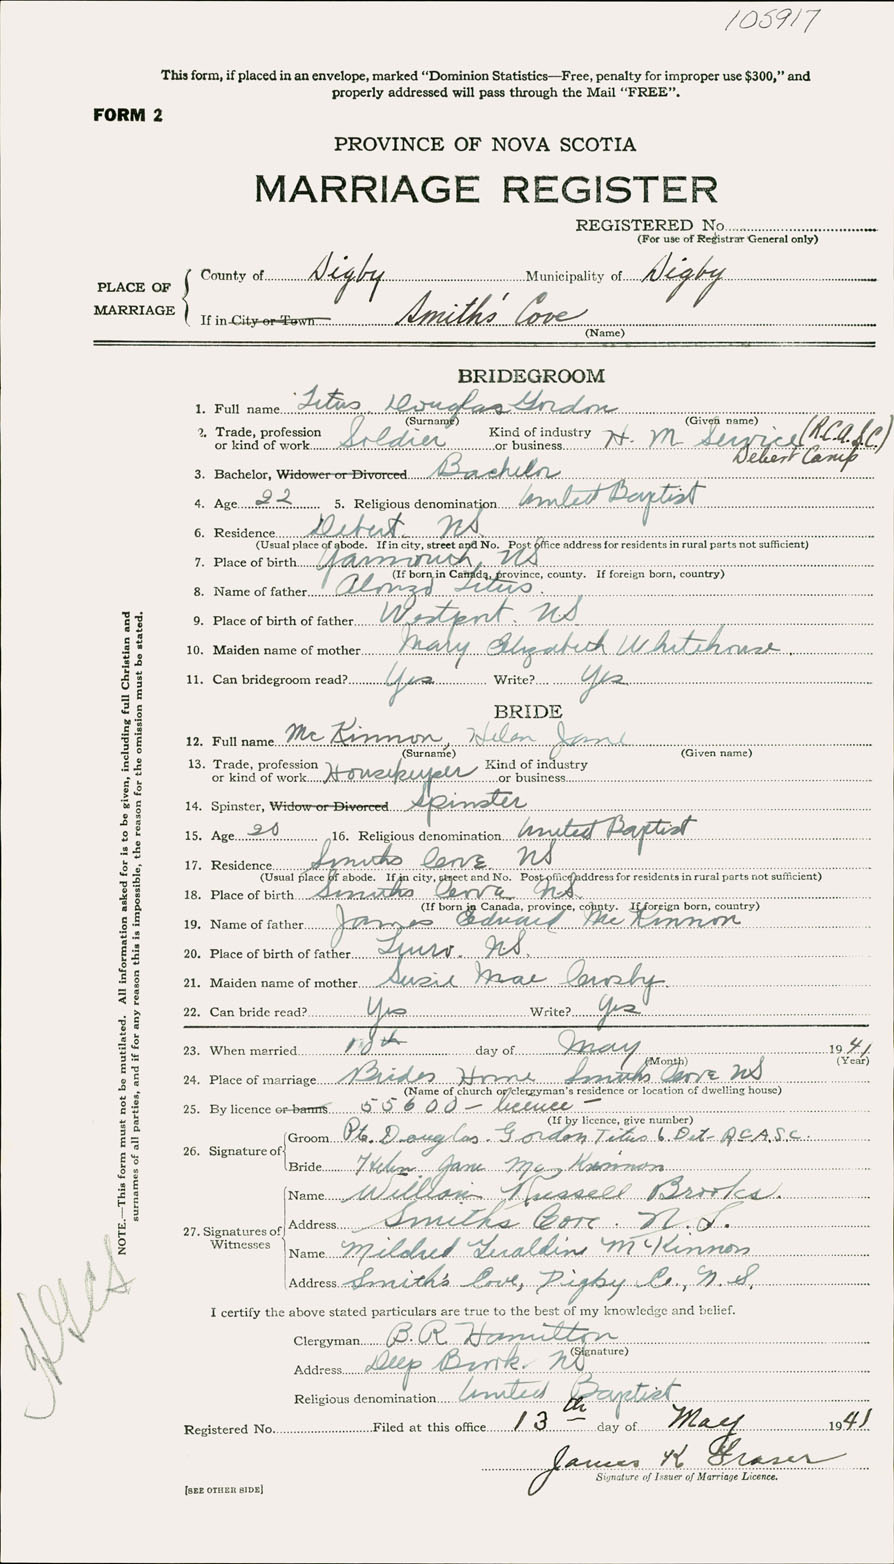 105917
This form, if placed in an envelope, marked "Dominion Statistics—Free, penalty for improper use $300," and
properly addressed will pass through the Mail "FREE".
FORM 2
PROVINCE OF NOVA SCOTIA
MARRIAGE REGISTER
REGISTERED No.
(For use of Registrar General only)
PLACE OF MARRIAGE
County of Digby Municipality of Digby
If in City or Town Smith's Cove
(Name)
BRIDEGROOM
1. Full name Titus, Douglas Gordon
(Surname) (Given name)
2. Trade, profession or kind of work Soldier Kind of industry or business H. M Service (R.C.A.S.C.)
Debert Camp
3. Bachelor, Widower or Divorced Bachelor
4. Age 22 5. Religious denomination United Baptist
6. Residence Debert. NS
(Usual place of abode. If in city, street and No. Post office address for residents in rural parts not sufficient)
7. Place of birth Yarmouth, NS
(If born in Canada, province, county. If foreign born, country)
8. Name of father Alonzo Titus.
9. Place of birth of father Westport. NS
10. Maiden name of mother Mary Elizabeth Whitehouse.
11. Can bridegroom read? Yes Write? Yes
BRIDE
12. Full name McKinnon, Helen Jane
(Surname) (Given name)
13. Trade, profession or kind of work Housekeeper Kind of industry or business
14. Spinster, Widow or Divorced Spinster
15. Age 20 16. Religious denomination United Baptist
17. Residence Smiths Cove NS
(Usual place of abode. If in city, street and No. Post office address for residents in rural parts not sufficient)
18. Place of birth Smiths Cove NS
(If born in Canada, province, county. If foreign born, country)
19. Name of father James Edward McKinnon
20. Place of birth of father Truro. NS.
21. Maiden name of mother Susie Mae Crosby.
22. Can bride read? Yes Write? Yes
23. When married day of May 1941
(Month) (Year)
24. Place of marriage Brides Home Smiths Cove NS
(Name of church or clergyman's residence or location of dwelling house)
25. By licence or banns 55600 – licence –
(If by licence, give number)
26. Signature of
Groom Pte. Douglas Gordon Titus 6 Det R.C.A.S.C.
Bride Helen Jane McKinnon
27. Signatures of Witnesses
Name William Russell Brooks.
Address Smiths Cove. N.S.
Name Mildred Geraldine McKinnon
Address Smith's Cove, Digby Co., N.S.
I certify the above stated particulars are true to the best of my knowledge and belief.
Clergyman B.R. Hamilton
(Signature)
Address Deep Brook. NS
Religious denomination United Baptist
Registered No. Filed at this office 13th day of May 1941
James K Fraser
Signature of Issuer of Marriage Licence.
[SEE OTHER SIDE]
NOTE.—This form must not be mutilated. All information asked for is to be given, including full Christian and
surnames of all parties, and if for any reason this is impossible, the reason for the omission must be stated.